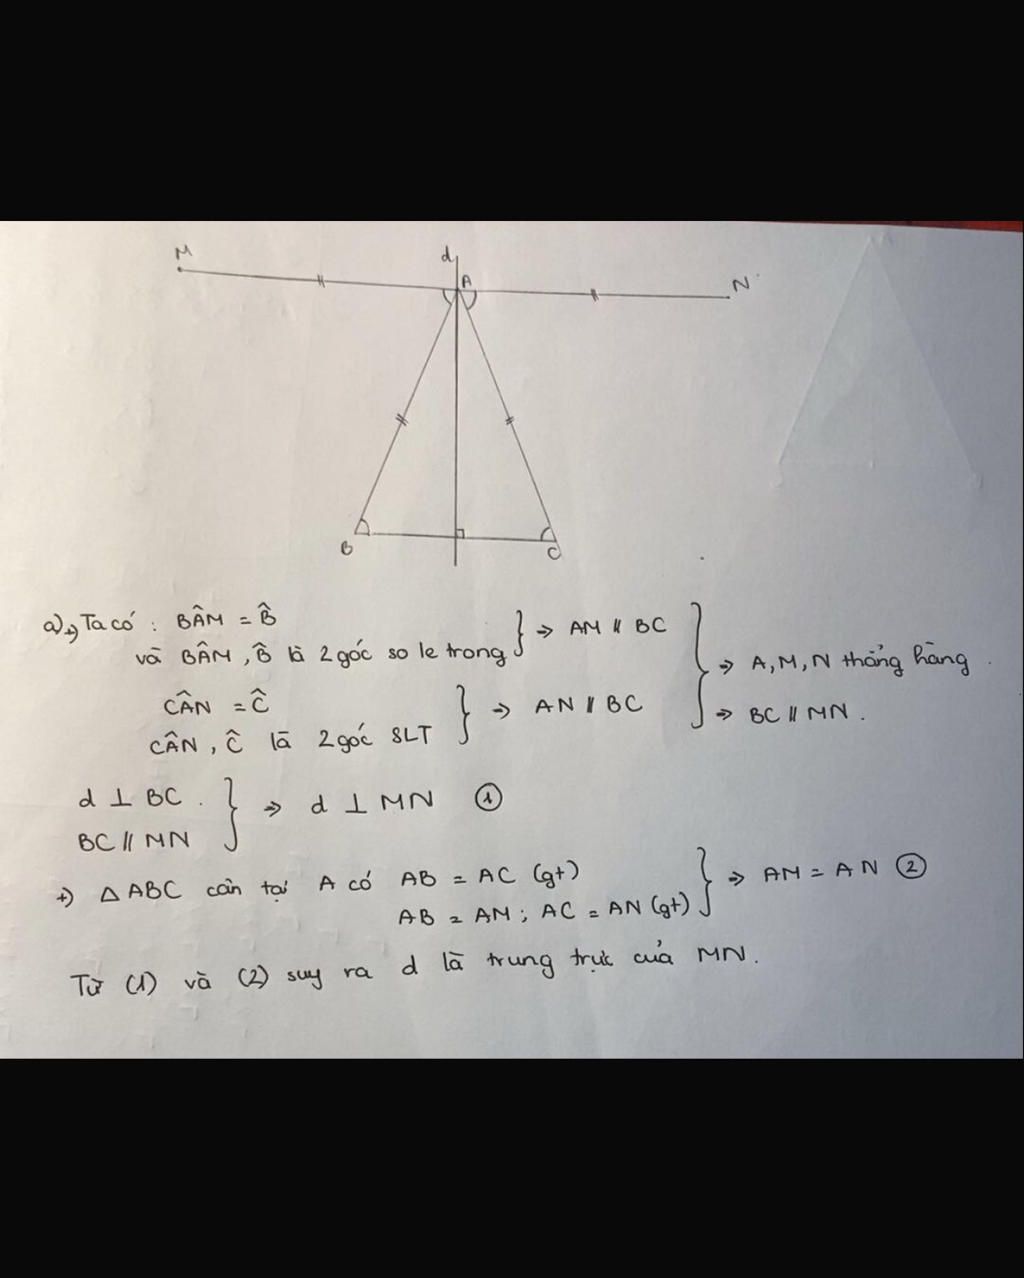 M
d
A
N
B
C
a) +) Ta có : BÂM = B̂
và BÂM , B̂ là 2 góc so le trong } => AM // BC
CÂN = Ĉ
CÂN , Ĉ là 2 góc SLT } => AN // BC
} => A, M, N thẳng hàng .
=> BC // MN .
d ⊥ BC .
BC // MN } => d ⊥ MN ①
+) Δ ABC cân tại A có AB = AC (gt)
AB = AM ; AC = AN (gt) } => AM = AN ②
Từ (1) và (2) suy ra d là trung trực của MN .